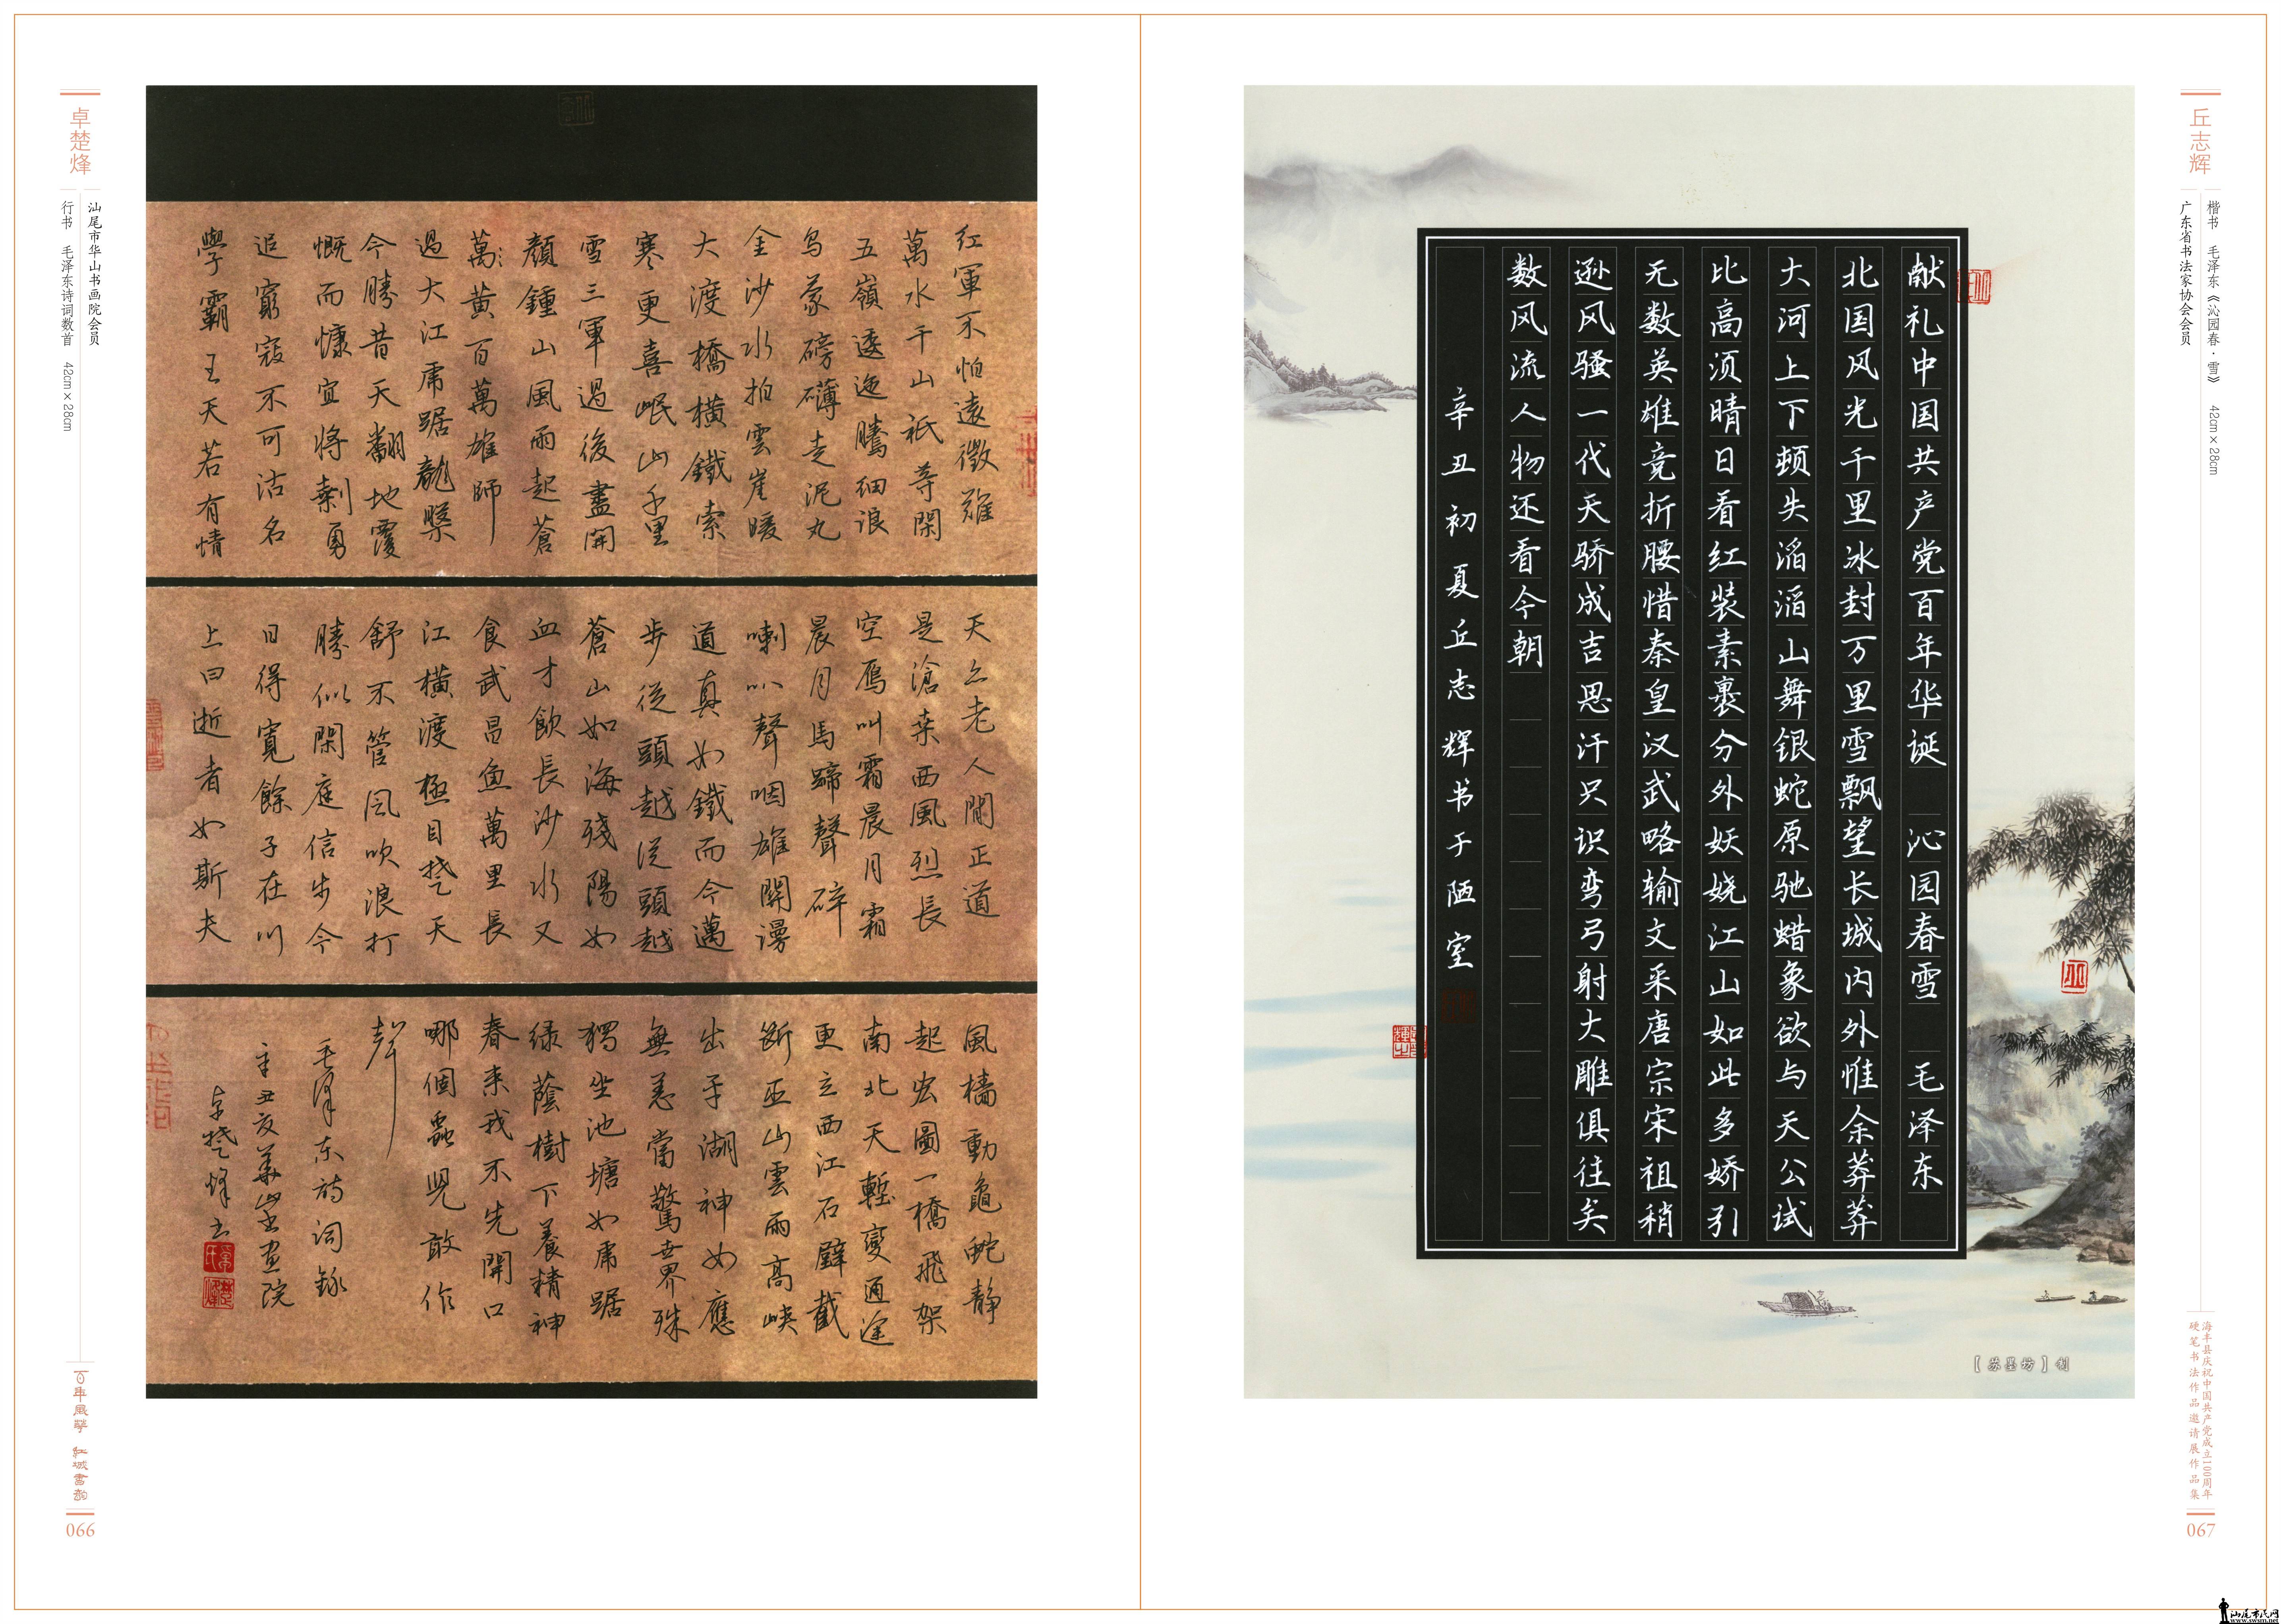 卓楚烽
汕尾市华山书画院会员
行书 毛泽东诗词数首 42cm×28cm
紅軍不怕遠徵難
萬水千山衹等閑
五嶺逶迤騰細浪
烏蒙磅礴走泥丸
金沙水拍雲崖暖
大渡橋橫鐵索
寒更喜岷山千里
雪三軍過後盡開
顏鍾山風雨起蒼
萬黃百萬雄師
過大江虎踞龍盤
今勝昔天翻地覆
慨而慷宜將剩勇
追窮寇不可沽名
學霸王天若有情
天亦老人間正道
是滄桑西風烈長
空雁叫霜晨月霜
晨月馬蹄聲碎
喇叭聲咽雄關漫
道真如鐵而今邁
步從頭越從頭越
蒼山如海殘陽如
血才飲長沙水又
食武昌魚萬里長
江橫渡極目楚天
舒不管風吹浪打
勝似閑庭信步今
日得寬餘子在川
上曰逝者如斯夫
風檣動龜蛇静
起宏圖一橋飛架
南北天塹變通途
更立西江石壁截
斷巫山雲雨高峽
出平湖神女應
無恙當驚世界殊
獨坐池塘如虎踞
绿蔭樹下養精神
春來我不先開口
哪個蟲兒敢作
聲
毛澤东詩词錄
辛丑夏華山書畫院
卓楚烽书
百年風華 紅城書韵
066
丘志辉
楷书 毛泽东《沁园春·雪》 42cm×28cm
广东省书法家协会会员
献礼中国共产党百年华诞 沁园春雪 毛泽东
北国风光千里冰封万里雪飘望长城内外惟余莽莽
大河上下顿失滔滔山舞银蛇原驰蜡象欲与天公试
比高须晴日看红装素裹分外妖娆江山如此多娇引
无数英雄竞折腰惜秦皇汉武略输文采唐宗宋祖稍
逊风骚一代天骄成吉思汗只识弯弓射大雕俱往矣
数风流人物还看今朝
辛丑初夏丘志辉书于陋室
【苏墨坊】制
海丰县庆祝中国共产党成立100周年
硬笔书法作品邀请展作品集
067
汕尾市民网
www.swsm.net